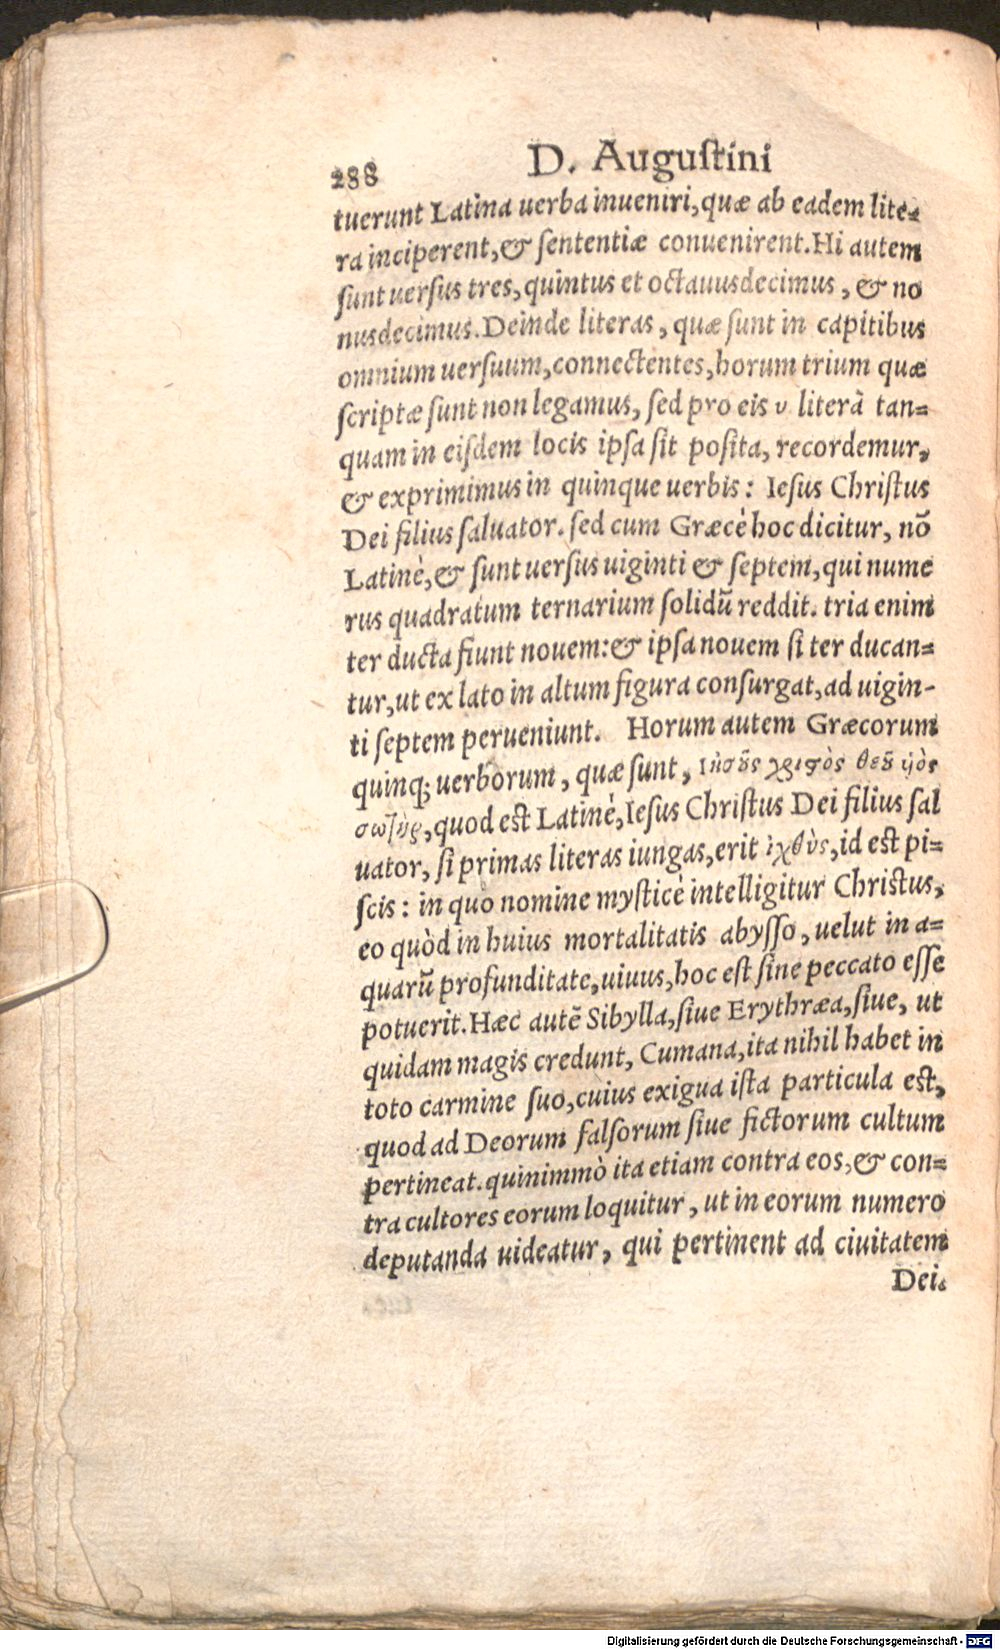 288 D. Augustini
tuerunt Latina uerba inueniri, quæ ab eadem lite=
ra inciperent, & sententiæ conuenirent. Hi autem
sunt uersus tres, quintus et octauusdecimus, & no
nusdecimus. Deinde literas, quæ sunt in capitibus
omnium uersuum, connectentes, horum trium quæ
scriptæ sunt non legamus, sed pro eis υ literā tan=
quam in eisdem locis ipsa sit posita, recordemur,
& exprimimus in quinque uerbis: Iesus Christus
Dei filius saluator. sed cum Græcè hoc dicitur, nō
Latinè, & sunt uersus uiginti & septem, qui nume
rus quadratum ternarium solidū reddit. tria enim
ter ducta fiunt nouem: & ipsa nouem si ter ducan=
tur, ut ex lato in altum figura consurgat, ad uigin-
ti septem perueniunt. Horum autem Græcorum
quinq; uerborum, quæ sunt, Ιησοῦς χριστὸς θεοῦ ὑὸς
σωτὴρ, quod est Latinè, Iesus Christus Dei filius sal
uator, si primas literas iungas, erit ἰχθὺς, id est pi=
scis: in quo nomine mysticè intelligitur Christus,
eo quòd in huius mortalitatis abysso, uelut in a=
quarū profunditate, uiuus, hoc est sine peccato esse
potuerit. Hæc autē Sibylla, siue Erythræa, siue, ut
quidam magis credunt, Cumana, ita nihil habet in
toto carmine suo, cuius exigua ista particula est,
quod ad Deorum falsorum siue fictorum cultum
pertineat. quinimmò ita etiam contra eos, & con=
tra cultores eorum loquitur, ut in eorum numero
deputanda uideatur, qui pertinent ad ciuitatem
Dei.
Digitalisierung gefördert durch die Deutsche Forschungsgemeinschaft - DFG